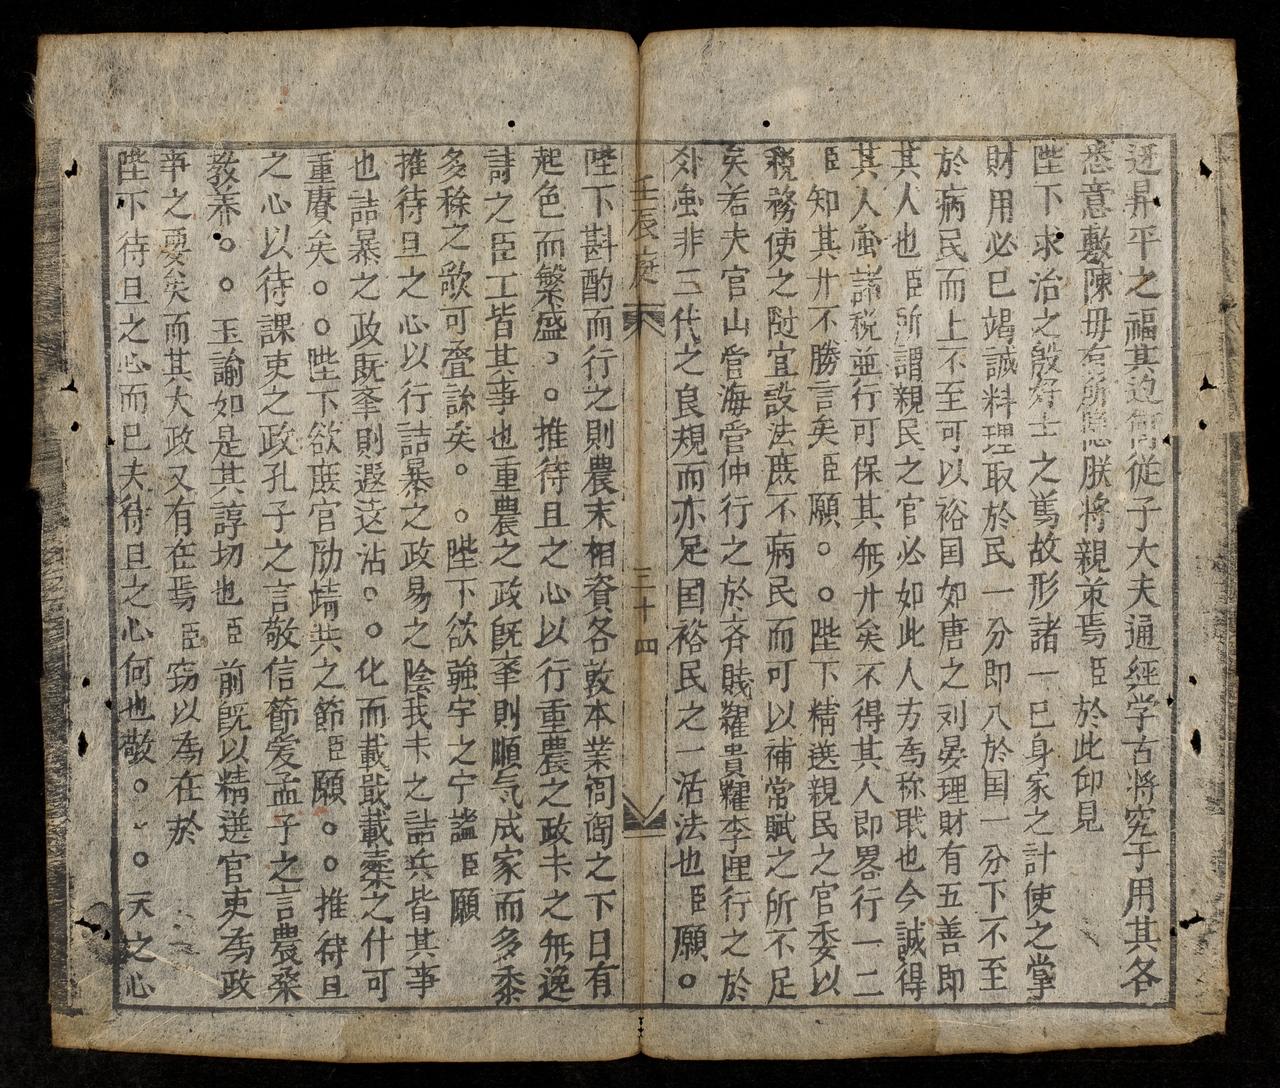 迓昇平之福其迫𠇮從子大夫通經学古将究于用其各
悉意敷陳毋有所隱朕將親策焉臣於此卬見
陛下求治之殷好士之篤故形諸一已身家之計使之掌
財用必已竭誠料理取於民一分即入於国一分下不至
於病民而上不至可以裕国如唐之刘晏理財有五善即
其人也臣所謂親民之官必如此人方為称耺也今誠得
其人虽諸税並行可保其無廾矣不得其人即畧行一二
臣知其廾不勝言矣臣願。。陛下精选親民之官委以
税務使之随宜設法庶不病民而可以補常賦之所不足
矣若夫官山管海管仲行之於斉賎糴貴糶李悝行之於
外虽非三代之良規而亦足国裕民之一活法也臣願。
壬辰庭 三十四
陛下斟酌而行之則農末相資各敦本業阎阎之下日有
起色而繁盛。。推待旦之心以行重農之政卡之無逸
詩之臣工皆其事也重農之政旣挙則順气成家而多黍
多稌之歌可叠詠矣。。陛下欲強宇之宁謐臣願
推待旦之心以行詰暴之政易之陰我卡之詰兵皆其事
也詰暴之政既挙則遐迩沾。。化而載戢載櫜之什可
重賡矣。。陛下欲庶官励靖共之節臣願。。推待旦
之心以待課吏之政孔子之言敬信節爱孟子之言農桒
教养。。玉諭如是其諄切也臣前旣以精选官吏為政
事之要矣而其大政又有在焉臣窃以為在於
陛下待旦之心而已夫待旦之心何也敬。。天之心